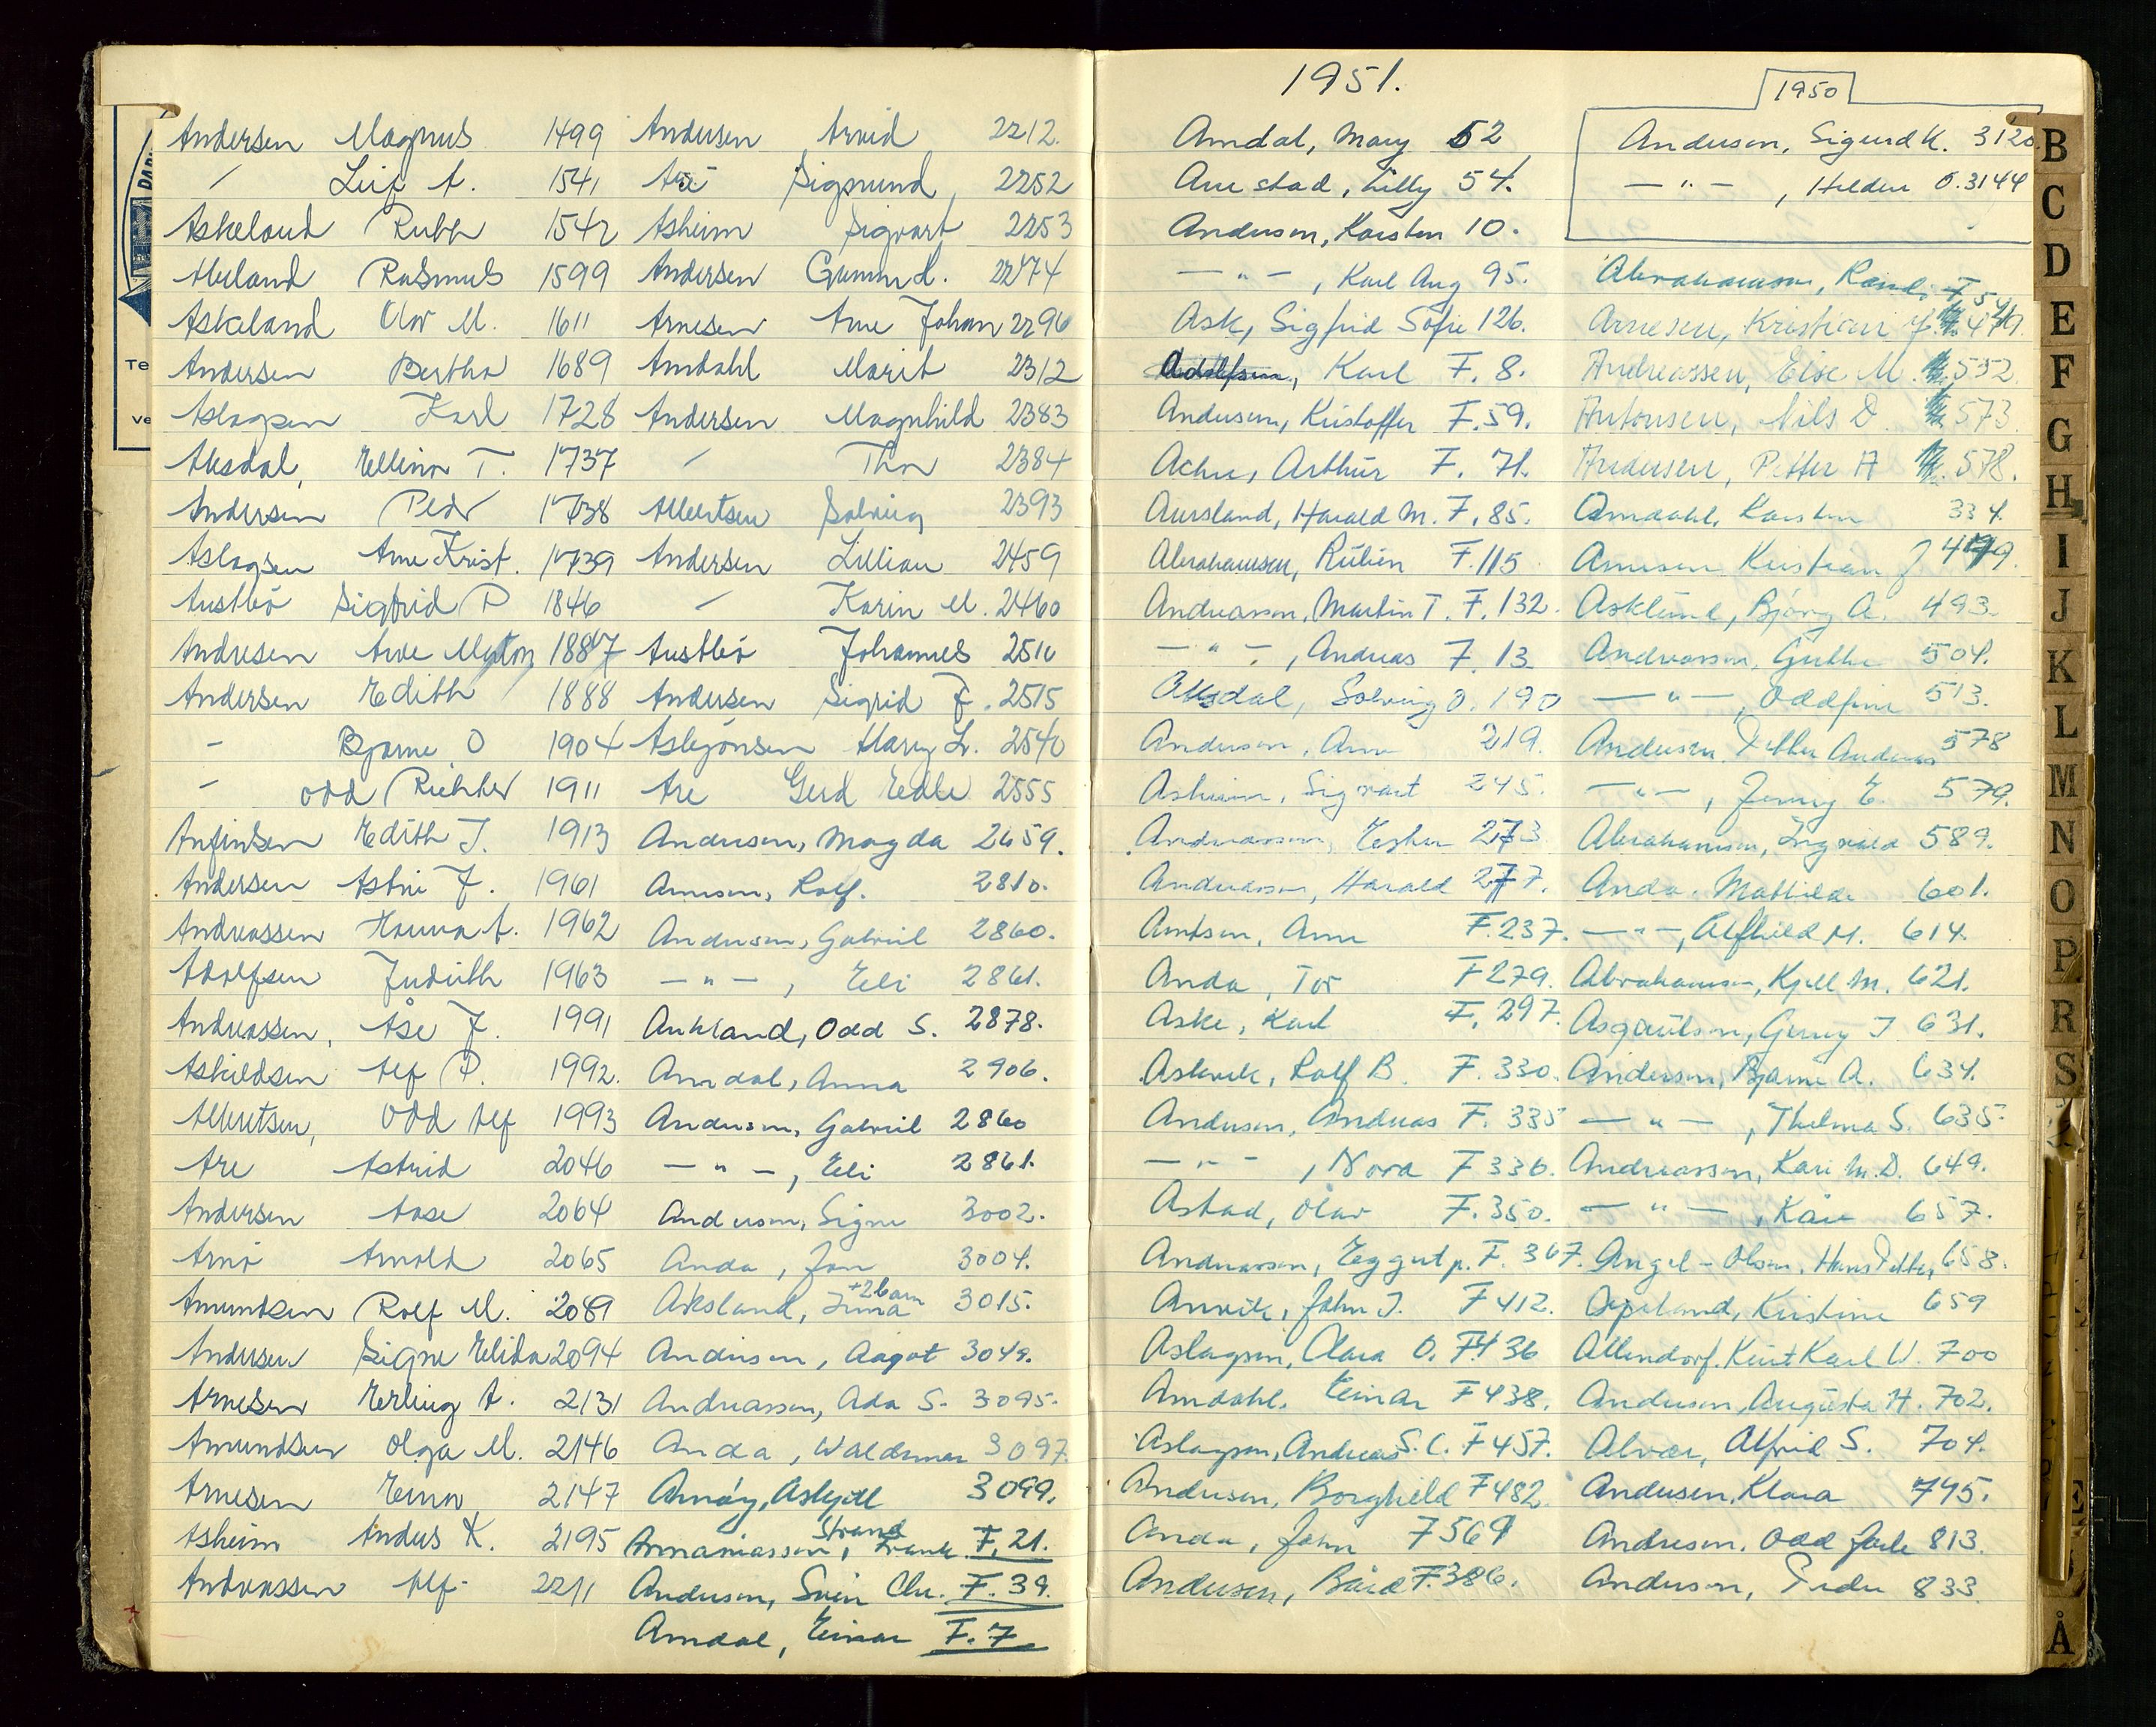 Andersen Magnus 1499
/ Leif A. 1541
Askeland Ruth 1542
Aluland Rasmus 1599
Askeland Olav M. 1611
Andersen Bertha 1689
Aslagsen Karl 1728
Aksdal, Ellinor T. 1737
Andersen Peder 1738
Aslagsen Arne Krist. 1739
Austbö Sigfrid P 1846
Andresen Arve 1887
Andersen Edith 1888
- Bjarne O 1904
- Odd Richter 1911
Anfinsen Edith J. 1913
Andersen Astri J. 1961
Andreassen Hanna A. 1962
Adolfsen Judith 1963
Andreassen, Åse J. 1991
Askildsen Alf P. 1992.
Albretsen, Odd Alf 1993
Are Astrid 2046
Andersen Aase 2064
Arnö Arnold 2065
Amundsen Rolf M. 2089
Andersen Signe Elida 2094
Arnesen Erling A. 2131
Amundsen Olga M. 2146
Arnesen Einar 2147
Asheim Anders K. 2195
Andreassen Alf 2211
Andersen Arvid 2212.
Are Sigmund 2252
Asheim Sigvart 2253
Andersen Gunn 2274
Arnesen Arne Johan 2296
Amdahl Marit 2312
Andersen Magnhild 2383
/ Thor 2384
Albertsen Solveig 2393
Andersen Lillian 2459
/ Karin M. 2460
Austbö Johannes 2510
Andersen Sigrid J. 2515
Asbjönsen Mary L. 2540
Are Gerd Edle 2555
Andersen, Magda 2659.
Arnesen, Rolf. 2810.
Andersen, Gabriel 2860.
— " —, Eli 2861.
Aukland, Odd S. 2878.
Amdal, Anna 2906.
Andersen, Gabriel 2860
— " —, Eli 2861.
Andersen, Signe 3002.
Anda, Jon 3004.
+2 barn
Aksland, Inna 3015.
Andersen, Aagot 3049.
Andreassen, Ada S. 3095.
Anda, Waldemar 3097.
Arnöy, Askjell 3099.
Strand
Annaniassen, Frank F. 21.
Andersen, Svein Chr. F. 39.
Amdal, Einar F. 7
1951.
Amdal, Mary 52
Auestad, Lilly 54.
Andersen, Karsten 10.
— " —, Karl Aug 95.
Ask, Sigfrid Sofie 126.
Adolfsen, Karl F. 8.
Andersen, Kristoffer F. 59.
Achn, Arthur F. 71.
Aursland, Harald M. F. 85.
Abrahamsen, Ruben F. 115
Andreassen, Martin T. F. 132.
— " —, Andreas F. 13
Aksdal, Solveig O. 190
Andersen, Arne 219.
Asheim, Sigvart 245.
Andreassen, Esther 273
Andreassen, Harald 277.
Arntsen, Arne F. 237.
Anda, Tor F 279.
Aske, Karl F. 297.
Askvik, Rolf B. F. 330.
Andersen, Andreas F. 335
— " —, Nora F 336.
Astad, Olav F. 350.
Andreassen, Eggert p. F. 367.
Anvik, John J. F 412.
Aslagsen, Clara O. F 436
Amdahl, Einar F 438.
Aslagsen, Andreas S. C. F 457.
Andersen, Borghild F 482
Anda, John F 569
Andersen, Bård F. 386.
1950
Andersen, Sigurd K. 3120.
— " —, Halden O. 3144
Abrahamsen, Randi F 5
Arnesen, Kristian
Andreassen, Else M. 552.
Antonsen, Nils D. 573.
Andersen, Petter A 578.
Amdahl, Karsten 334.
Arnesen Kristian J 479.
Asklund, Bjørg A. 493.
Andreassen, Guthe 504.
— " —, Oddfinn 513.
Andersen, Petter Andreas 578
— " —, Jenny E. 579.
Abrahamsen, Ingvald 589.
Anda, Mathilde 601.
— " —, Alfhild M. 614.
Abrahamsen, Kjell M. 621.
Asgautsen, Gunny J 631.
Andersen, Bjarne A. 634.
— " —, Thelma S. 635.
Andreassen, Kari M. D. 649.
— " —, Kåre 657.
Angel-Olsen, Hans Petter, 658.
Apeland, Kristine 659
Allendorf, Kurt Karl W. 700
Andersen, Augusta H. 702.
Alvær, Alfrid S. 704.
Andersen, Klara 795.
Andresen, Odd Jarle 813.
Andersen, Peder 833.
B
C
D
E
F
G
H
I
J
K
L
M
N
O
P
R
S
Å